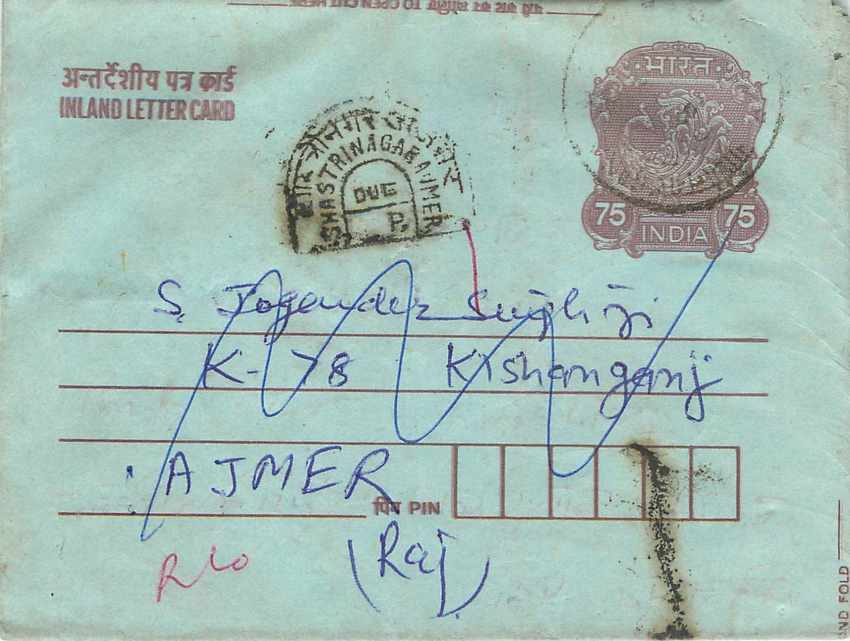 TO OPEN CUT HERE
अन्तर्देशीय पत्र कार्ड
INLAND LETTER CARD
भारत
75 75
INDIA
SHASTRINAGAR AJMER
DUE
P.
S. Jogender Singh ji
K-78 Kishanganj
AJMER
पिन PIN
(Raj)
R/o
ND FOLD